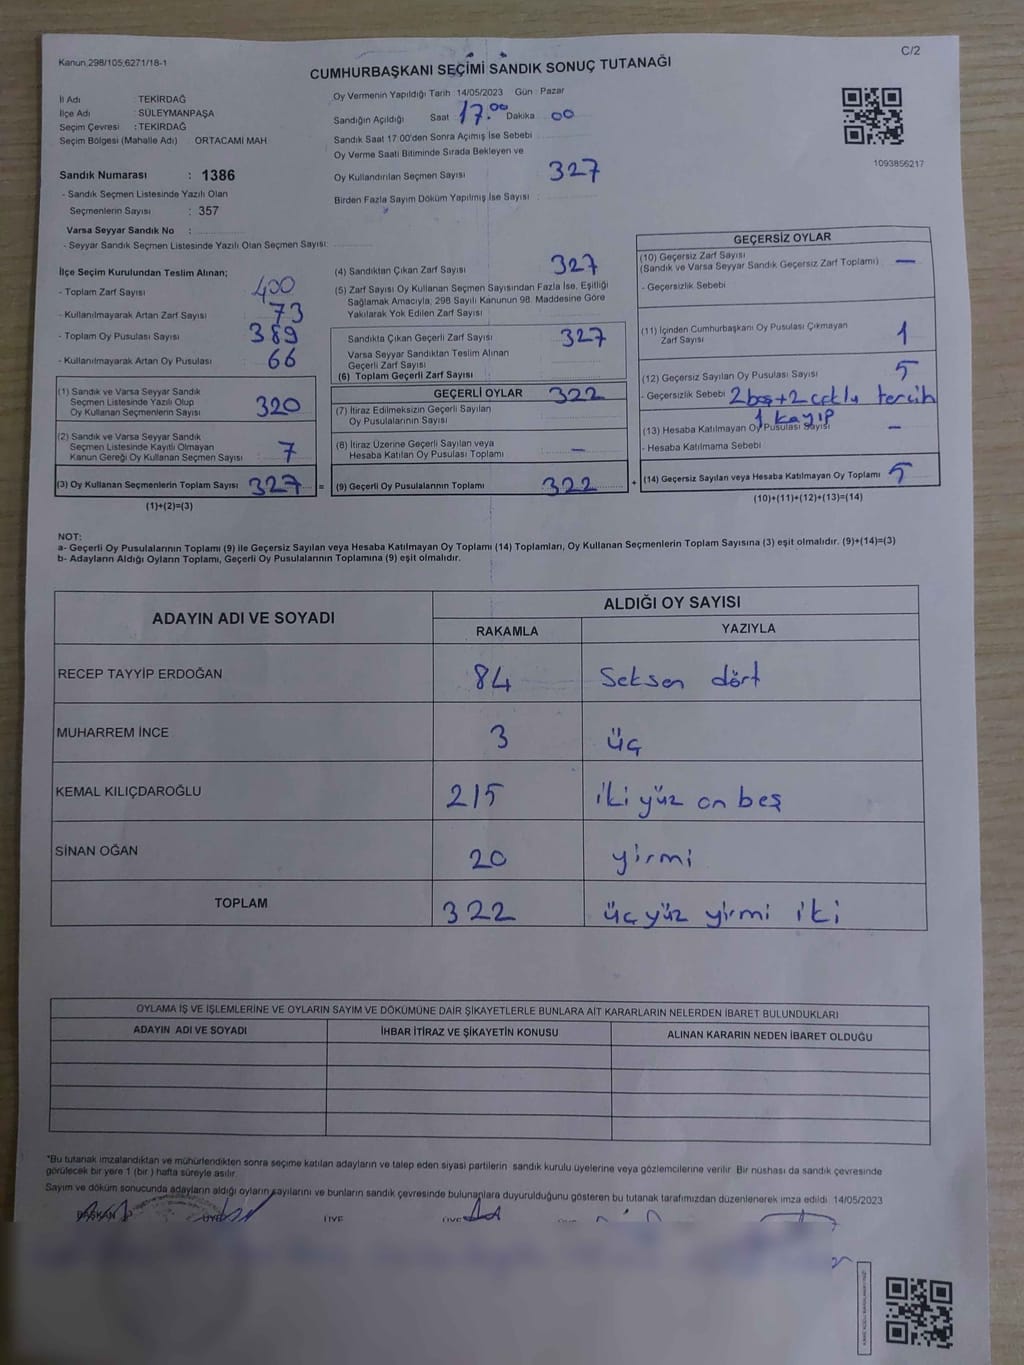 Kanun,298/105;6271/18-1
C/2
CUMHURBAŞKANI SEÇİMİ SANDIK SONUÇ TUTANAĞI
İl Adı : TEKİRDAĞ
İlçe Adı : SÜLEYMANPAŞA
Seçim Çevresi : TEKİRDAĞ
Seçim Bölgesi (Mahalle Adı) ORTACAMİ MAH
Sandık Numarası : 1386
- Sandık Seçmen Listesinde Yazılı Olan
Seçmenlerin Sayısı : 357
Varsa Seyyar Sandık No :
- Seyyar Sandık Seçmen Listesinde Yazılı Olan Seçmen Sayısı:
Oy Vermenin Yapıldığı Tarih : 14/05/2023 Gün : Pazar
Sandığın Açıldığı Saat 17.00 Dakika 00
Sandık Saat 17.00'den Sonra Açımış İse Sebebi
Oy Verme Saati Bitiminde Sırada Bekleyen ve
Oy Kullandırılan Seçmen Sayısı 327
Birden Fazla Sayım Döküm Yapılmış İse Sayısı :
1093856217
İlçe Seçim Kurulundan Teslim Alınan;
- Toplam Zarf Sayısı 400
- Kullanılmayarak Artan Zarf Sayısı 73
- Toplam Oy Pusulası Sayısı 389
- Kullanılmayarak Artan Oy Pusulası 66
(1) Sandık ve Varsa Seyyar Sandık
Seçmen Listesinde Yazılı Olup
Oy Kullanan Seçmenlerin Sayısı 320
(2) Sandık ve Varsa Seyyar Sandık
Seçmen Listesinde Kayıtlı Olmayan
Kanun Gereği Oy Kullanan Seçmen Sayısı 7
(3) Oy Kullanan Seçmenlerin Toplam Sayısı 327 =
(1)+(2)=(3)
(4) Sandıktan Çıkan Zarf Sayısı 327
(5) Zarf Sayısı Oy Kullanan Seçmen Sayısından Fazla İse, Eşitliği
Sağlamak Amacıyla, 298 Sayılı Kanunun 98. Maddesine Göre
Yakılarak Yok Edilen Zarf Sayısı
Sandıkta Çıkan Geçerli Zarf Sayısı 327
Varsa Seyyar Sandıktan Teslim Alınan
Geçerli Zarf Sayısı
(6) Toplam Geçerli Zarf Sayısı
GEÇERLİ OYLAR 322
(7) İtiraz Edilmeksizin Geçerli Sayılan
Oy Pusulalarının Sayısı
(8) İtiraz Üzerine Geçerli Sayılan veya
Hesaba Katılan Oy Pusulası Toplamı –
(9) Geçerli Oy Pusulalarının Toplamı 322 +
GEÇERSİZ OYLAR
(10) Geçersiz Zarf Sayısı
(Sandık ve Varsa Seyyar Sandık Geçersiz Zarf Toplamı) –
- Geçersizlik Sebebi
(11) İçinden Cumhurbaşkanı Oy Pusulası Çıkmayan
Zarf Sayısı 1
(12) Geçersiz Sayılan Oy Pusulası Sayısı 5
- Geçersizlik Sebebi 2 boş+2 çoklu tercih
1 kayıp
(13) Hesaba Katılmayan Oy Pusulası Sayısı –
- Hesaba Katılmama Sebebi
(14) Geçersiz Sayılan veya Hesaba Katılmayan Oy Toplamı 5
(10)+(11)+(12)+(13)=(14)
NOT:
a- Geçerli Oy Pusulalarının Toplamı (9) ile Geçersiz Sayılan veya Hesaba Katılmayan Oy Toplamı (14) Toplamları, Oy Kullanan Seçmenlerin Toplam Sayısına (3) eşit olmalıdır. (9)+(14)=(3)
b- Adayların Aldığı Oyların Toplamı, Geçerli Oy Pusulalarının Toplamına (9) eşit olmalıdır.
ADAYIN ADI VE SOYADI
ALDIĞI OY SAYISI
RAKAMLA YAZIYLA
RECEP TAYYİP ERDOĞAN 84 Seksen dört
MUHARREM İNCE 3 üç
KEMAL KILIÇDAROĞLU 215 iki yüz on beş
SİNAN OĞAN 20 yirmi
TOPLAM 322 üç yüz yirmi iki
OYLAMA İŞ VE İŞLEMLERİNE VE OYLARIN SAYIM VE DÖKÜMÜNE DAİR ŞİKAYETLERLE BUNLARA AİT KARARLARIN NELERDEN İBARET BULUNDUKLARI
ADAYIN ADI VE SOYADI İHBAR İTİRAZ VE ŞİKAYETİN KONUSU ALINAN KARARIN NEDEN İBARET OLDUĞU
*Bu tutanak imzalandıktan ve mühürlendikten sonra seçime katılan adayların ve talep eden siyasi partilerin sandık kurulu üyelerine veya gözlemcilerine verilir. Bir nüshası da sandık çevresinde
görülecek bir yere 1 (bir) hafta süreyle asılır.
Sayım ve döküm sonucunda adayların aldığı oyların sayılarını ve bunların sandık çevresinde bulunanlara duyurulduğunu gösteren bu tutanak tarafımızdan düzenlenerek imza edildi. 14/05/2023
BAŞKAN ÜYE ÜYE ÜYE